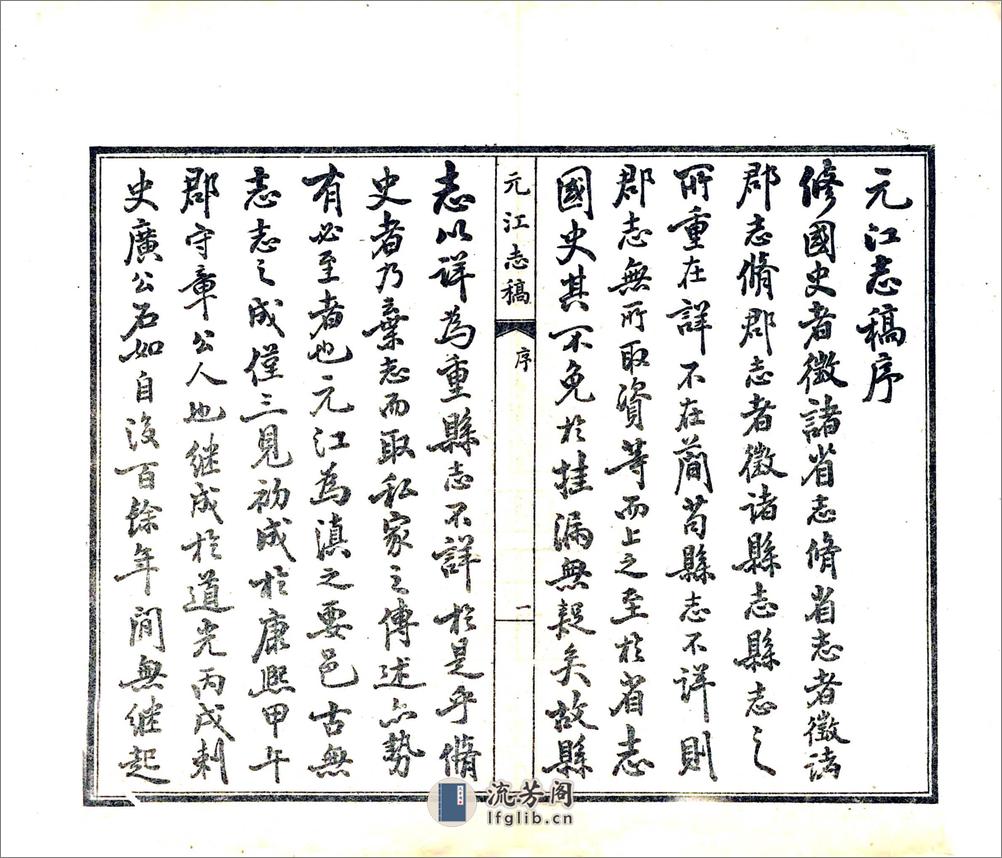 元江志稿序
修國史者徵諸省志脩省志者徵諸
郡志脩郡志者徵諸縣志縣志之
所重在詳不在簡苟縣志不詳則
郡志無所取資等而上之至於省志
國史其不免於挂漏無疑矣故縣
元江志稿
序
一
志以詳為重縣志不詳於是乎脩
史者乃棄志而取私家之傳述亦勢
有必至者也元江為滇之要邑古無
志志之成僅三見初成於康熙甲午
郡守章公人也繼成於道光丙戌刺
史廣公石如自後百餘年間無繼起
流芳阁
lfglib.cn